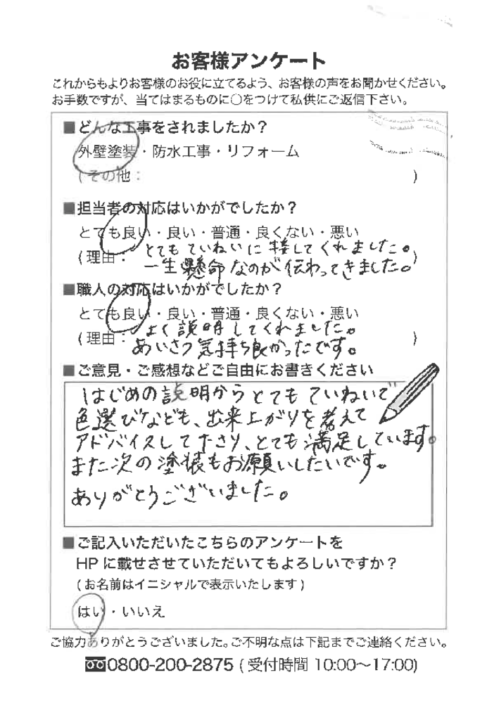 お客様アンケート
これからもよりお客様のお役に立てるよう、お客様の声をお聞かせください。
お手数ですが、当てはまるものに○をつけて私供にご返信下さい。
■どんな工事をされましたか？
外壁塗装・防水工事・リフォーム
(その他： )
■担当者の対応はいかがでしたか？
とても良い・良い・普通・良くない・悪い
(理由： とてもていねいに接してくれました。
一生懸命なのが伝わってきました。)
■職人の対応はいかがでしたか？
とても良い・良い・普通・良くない・悪い
(理由： よく説明してくれました。
あいさつ気持ち良かったです。 )
■ご意見・ご感想などご自由にお書きください
はじめの説明からとてもていねいで
色選びなども、出来上がりを考えて
アドバイスして下さり、とても満足しています。
また次の塗装もお願いしたいです。
ありがとうございました。
■ご記入いただいたこちらのアンケートを
HPに載せさせていただいてもよろしいですか？
(お名前はイニシャルで表示いたします)
はい・いいえ
ご協力ありがとうございました。ご不明な点は下記までご連絡ください。
0800-200-2875 (受付時間 10:00～17:00)